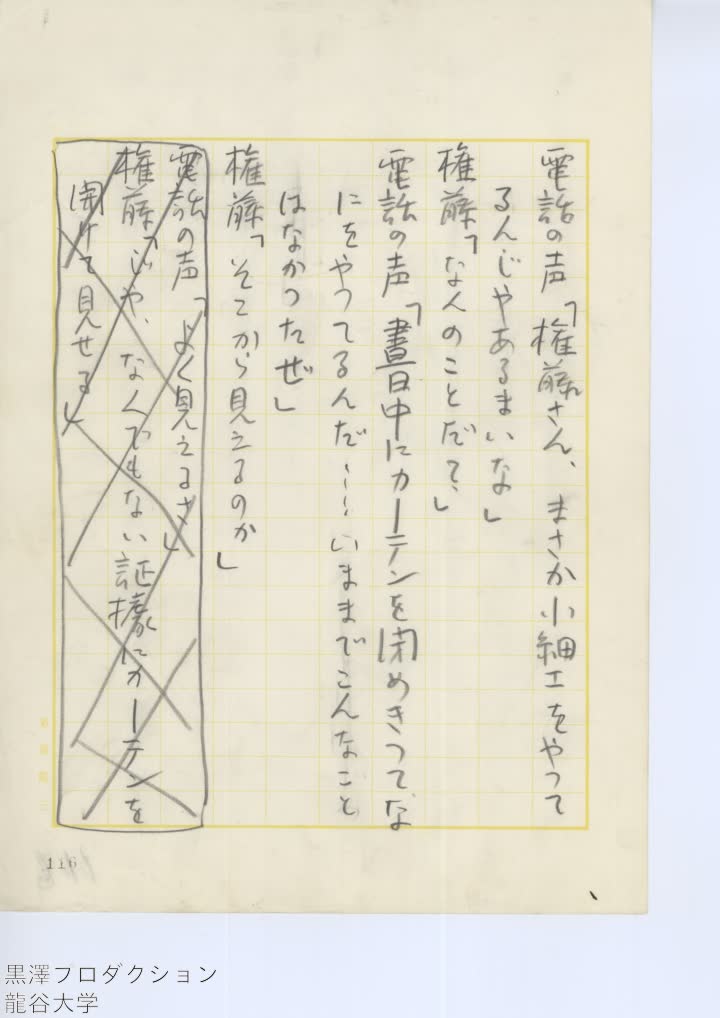 電話の声「権藤さん、まさか小細工をやって
るんじやあるまいな」
権藤「なんのことだ？」
電話の声「晝日中にカーテンを閉めきつて、な
にをやつてるんだ……いままでこんなこと
はなかつたぜ」
権藤「そこから見えるのか」
電話の声「よく見えるさ」
権藤「じや、なんでもない証拠にカーテンを
開けて見せる」
116
黒澤プロダクション
龍谷大学